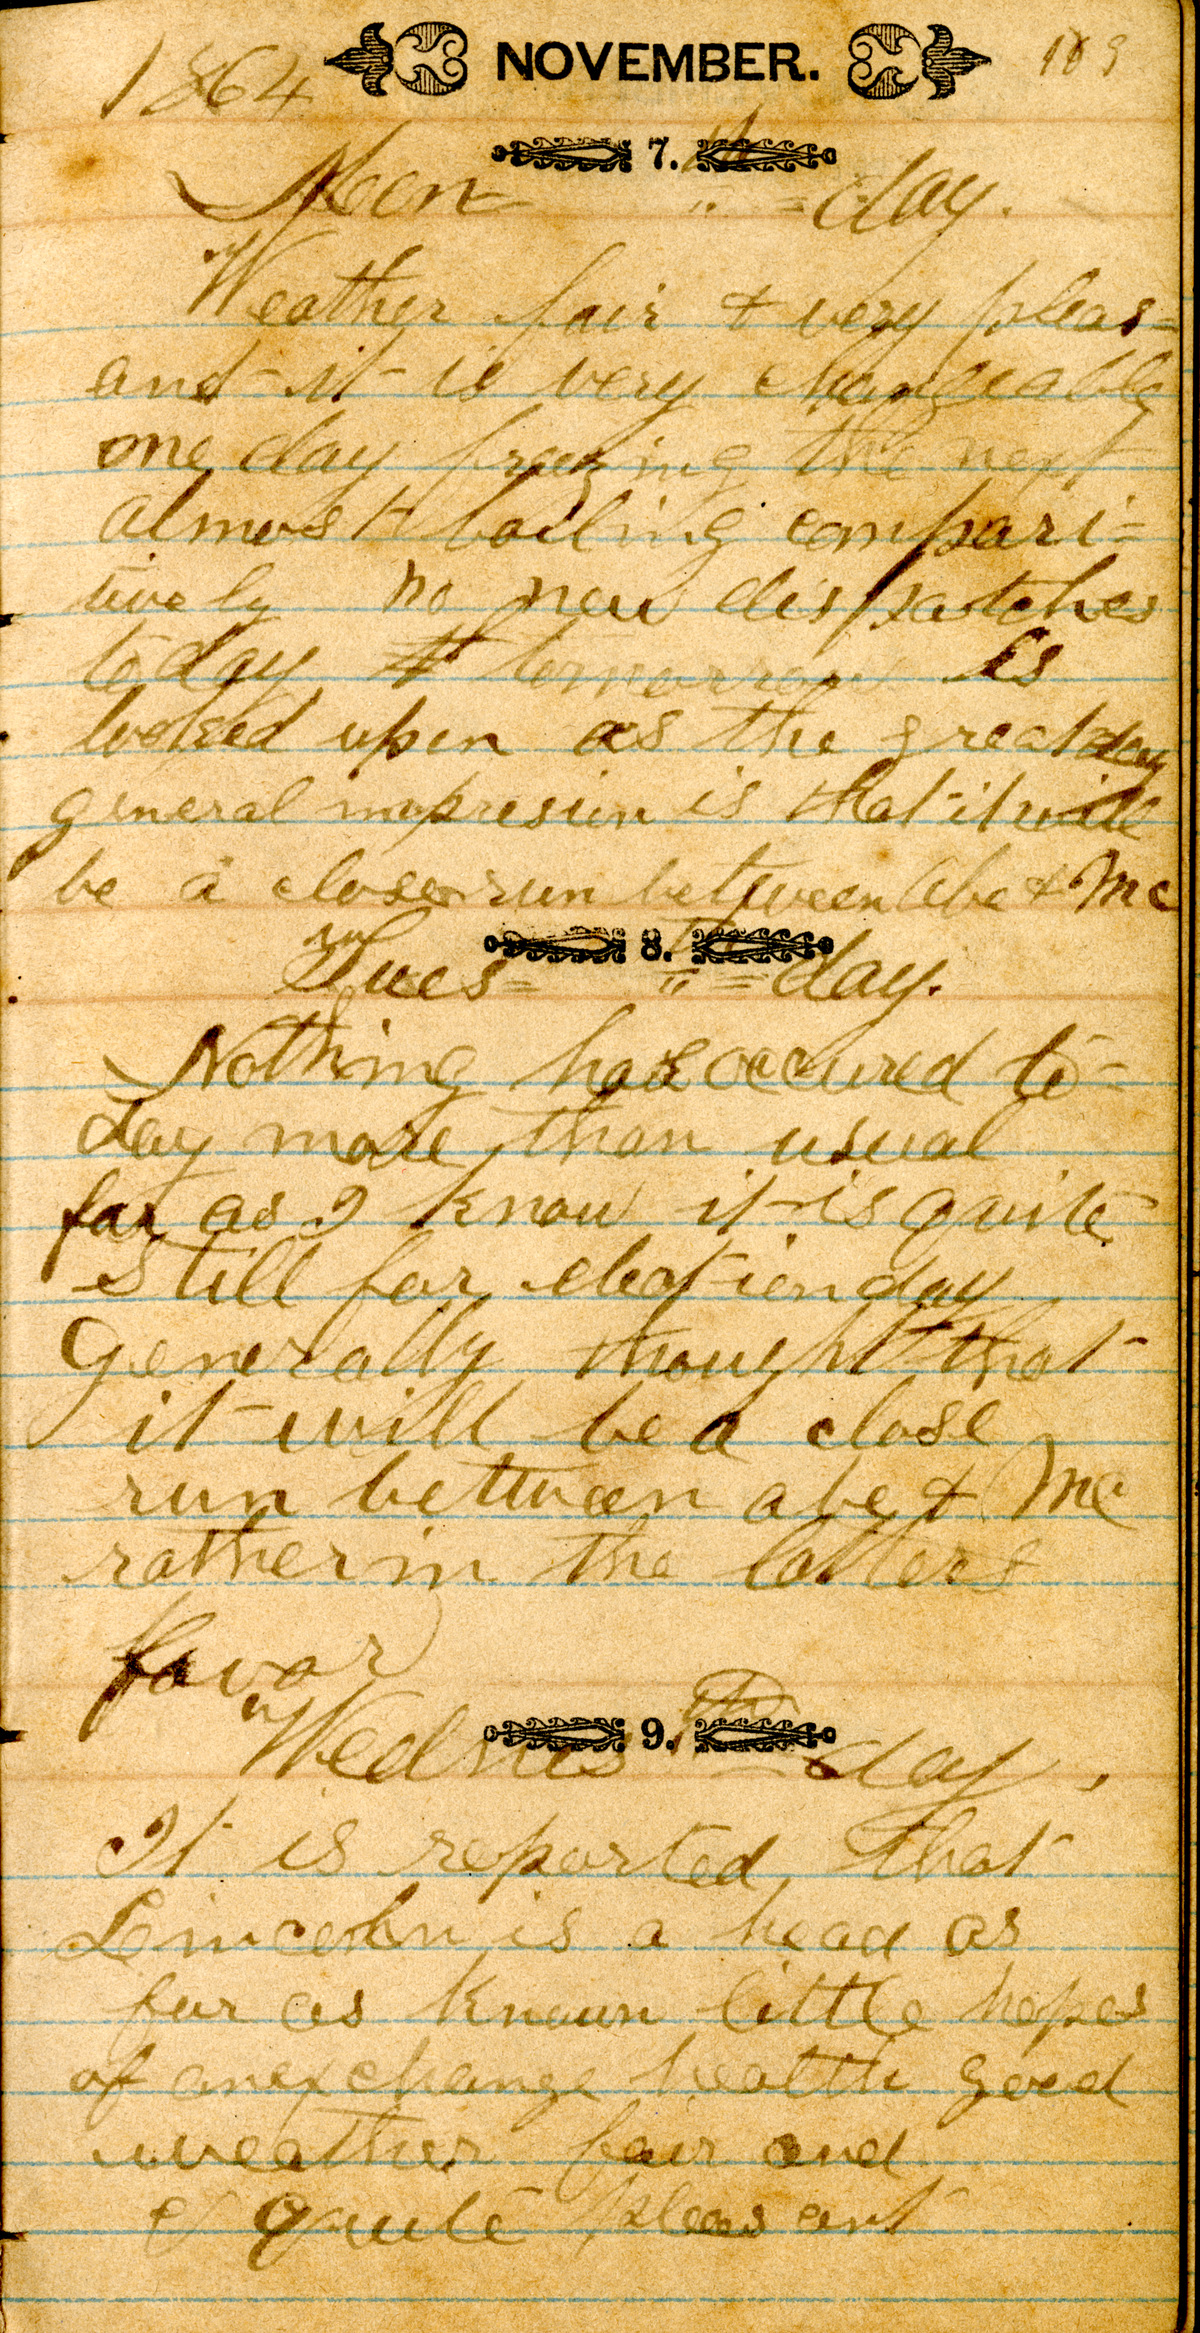 1864 NOVEMBER. 189
7. th
Mon= " = day.
Weather fair & very pleas=
ant it is very changeable
one day freezing the next
almost boiling compari=
tively no new dispatches
today tomorrow is
looked upon as the great day
general impresion is that it will
be a close run between Abe & Mc
8. th
Tues= " = day.
Nothing has occured to=
day more than usual
far as I know it is quite
still for election day
Generally thought that
it will be a close
run between abe & Mc
rather in the latters
favor
9. th
Wednes = day.
It is reported that
Lincoln is a head as
far as known little hopes
of an exchange health good
weather fair and
quite pleasant